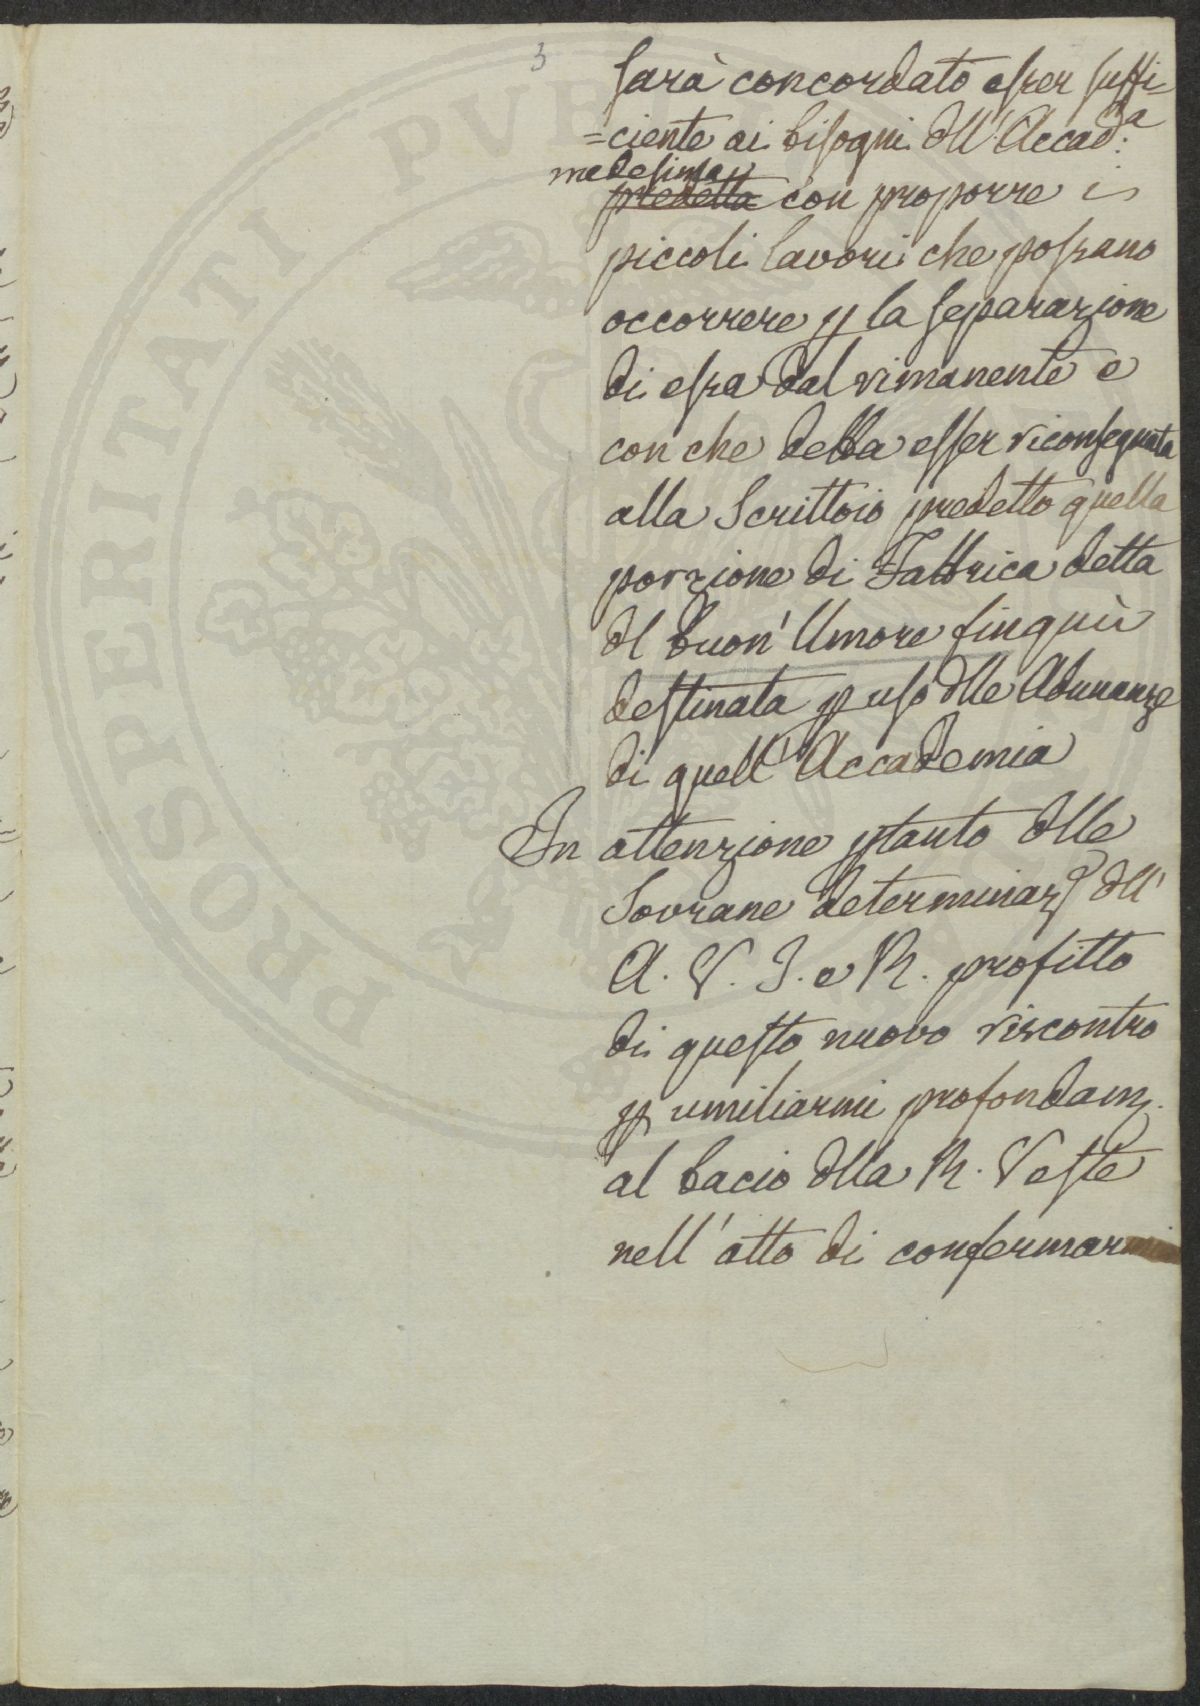 3
sarà concordato esser suffi-
=ciente ai bisogni dll'Accad:a
medesima
predetta con proporre i
piccoli lavori che possano
occorrere p la separazione
di essa dal rimanente e
con che debba esser riconsegnata
alla Scrittoio predetto quella
porzione di Fabbrica detta
dl buon'Umore finquì
destinata p uso dlle Adunanze
di quell'Accademia
In attenzione ptanto dlle
Sovrane determinaz dll'
A. V. I. e R. profitto
di questo nuovo riscontro
p umiliarmi profondam.
al bacio dlla R. Veste
nell'atto di confermarmi
PROSPERITATI